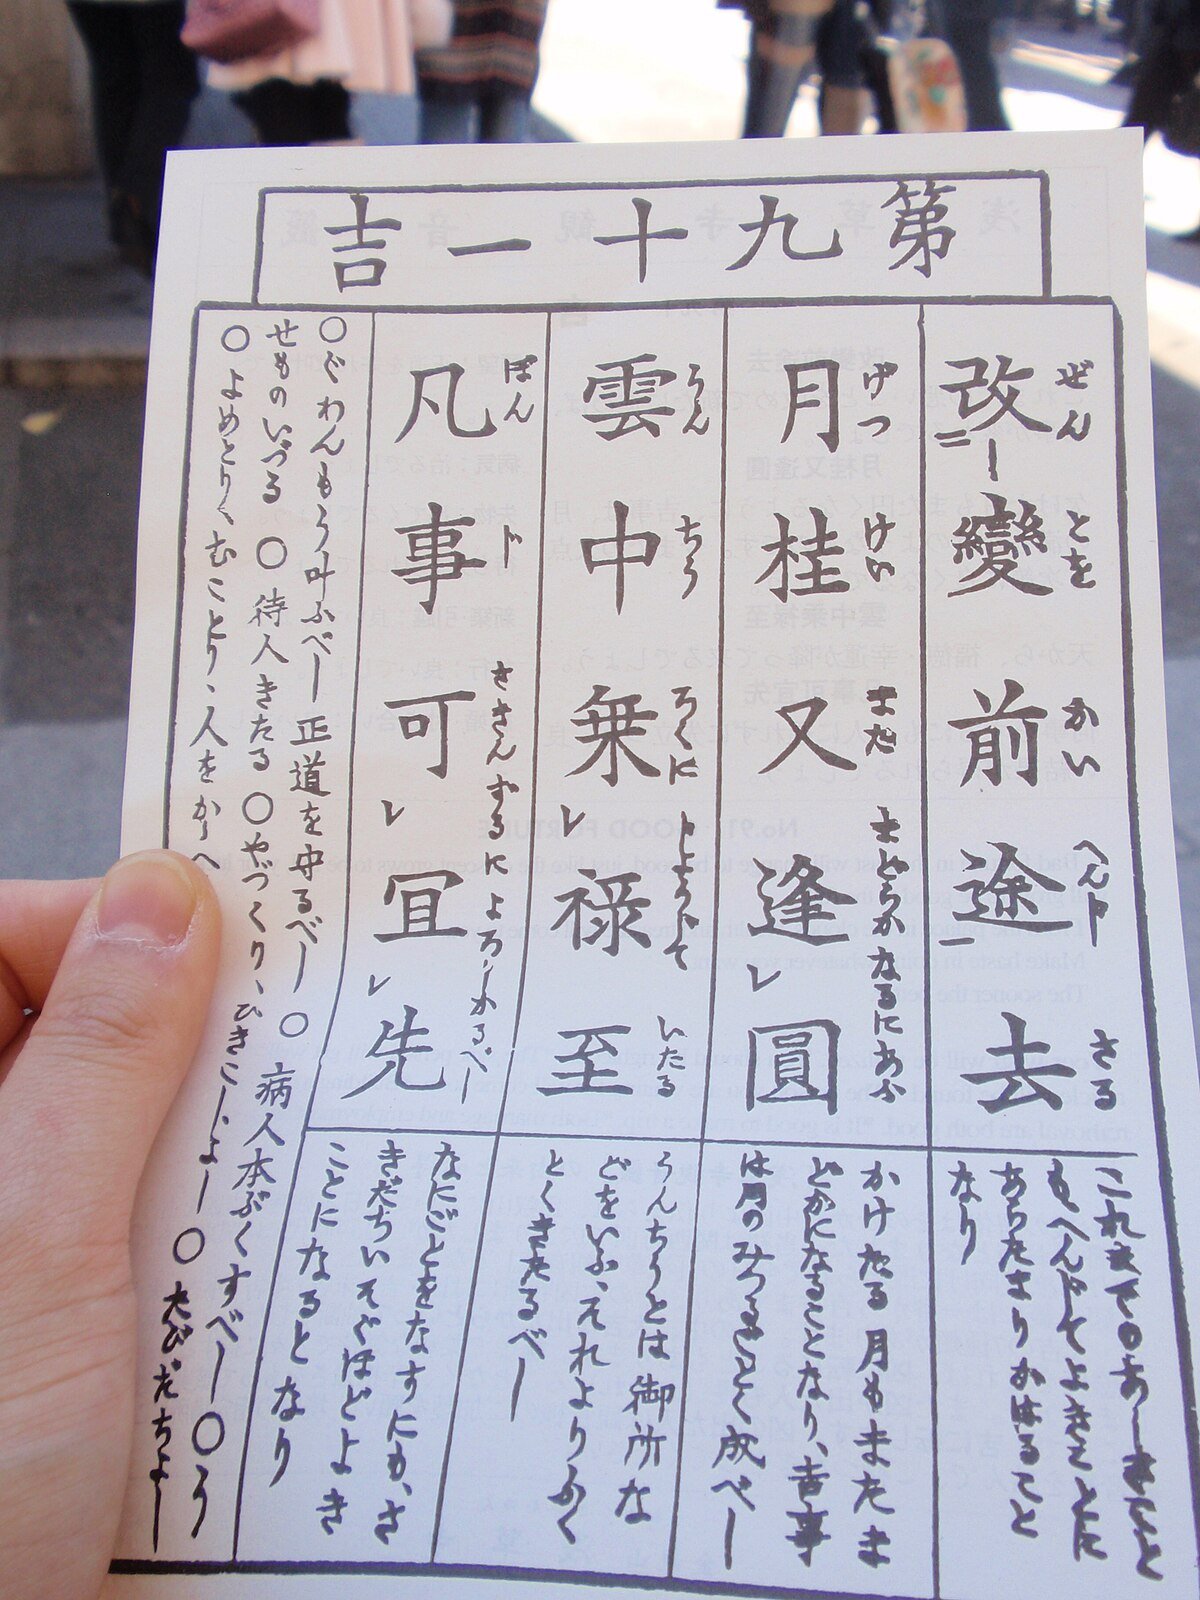 第九十一吉
改變前途去
ぜんとをかいへんしさる
これまでのあしきこと
もへんじてよきことに
あらたまりかはること
なり
月桂又逢圓
げつけいまたまどらかなるにあふ
かけたる月もまたま
どかになることなり、吉事
は月のみつるごとく成べし
雲中乗禄至
うんちうろくにじようじていたる
うんちうとは御所な
どをいふ、それよりふく
とくきたるべし
凡事可宜先
ぼんじささんずるによろしかるべし
なにごとをなすにも、さ
きだちいそぐほどよき
ことになるとなり
○ぐわんもう叶ふべし 正道を守るべし ○病人本ぶくすべし ○う
せものいづる ○待人きたる ○やづくり、ひきこしよし ○たびだちよし
○よめとり、むことり、人をかゝへ